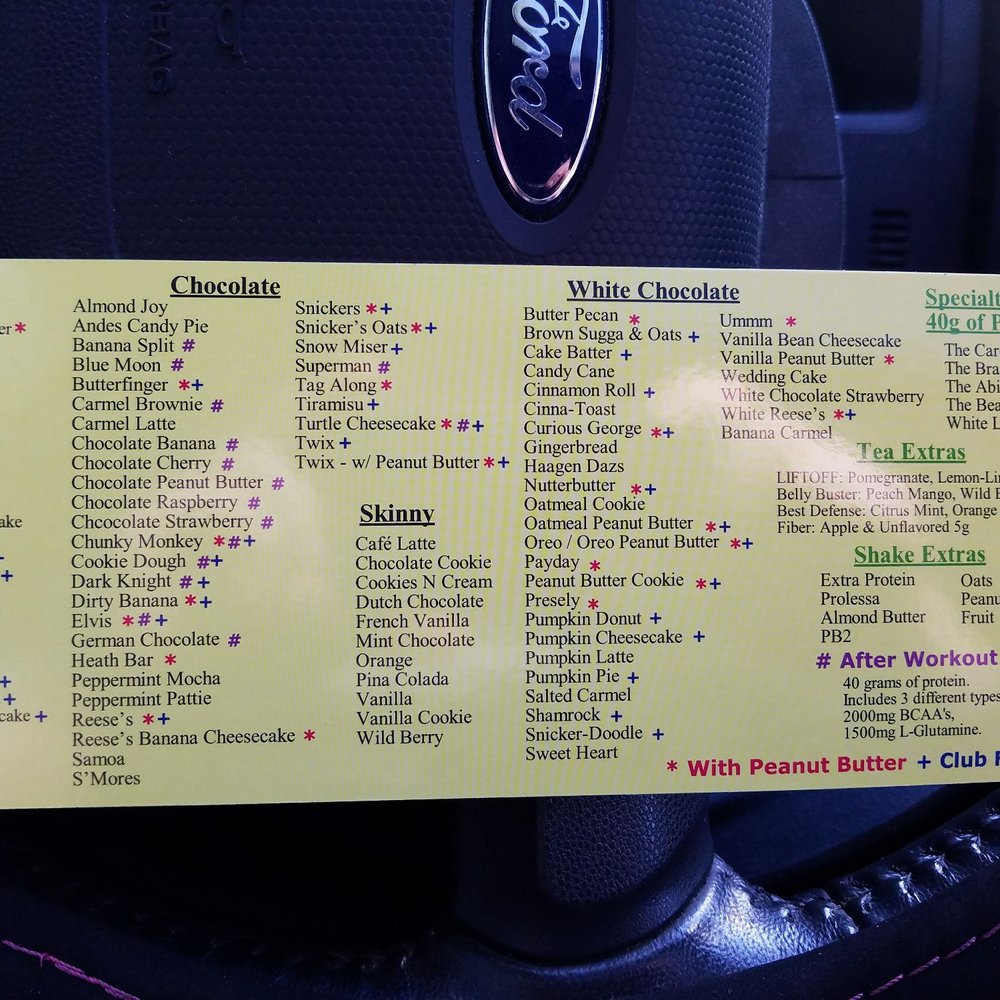 Ford
Chocolate
Almond Joy
Andes Candy Pie
Banana Split #
Blue Moon #
Butterfinger *+
Carmel Brownie #
Carmel Latte
Chocolate Banana #
Chocolate Cherry #
Chocolate Peanut Butter #
Chocolate Raspberry #
Chcocolate Strawberry #
Chunky Monkey *#+
Cookie Dough #+
Dark Knight #+
Dirty Banana *+
Elvis *#+
German Chocolate #
Heath Bar *
Peppermint Mocha
Peppermint Pattie
Reese's *+
Reese's Banana Cheesecake *
Samoa
S'Mores
Snickers *+
Snicker's Oats *+
Snow Miser +
Superman #
Tag Along *
Tiramisu +
Turtle Cheesecake *#+
Twix +
Twix - w/ Peanut Butter *+
Skinny
Café Latte
Chocolate Cookie
Cookies N Cream
Dutch Chocolate
French Vanilla
Mint Chocolate
Orange
Pina Colada
Vanilla
Vanilla Cookie
Wild Berry
White Chocolate
Butter Pecan *
Brown Sugga & Oats +
Cake Batter +
Candy Cane
Cinnamon Roll +
Cinna-Toast
Curious George *+
Gingerbread
Haagen Dazs
Nutterbutter *+
Oatmeal Cookie
Oatmeal Peanut Butter *+
Oreo / Oreo Peanut Butter *+
Payday *
Peanut Butter Cookie *+
Presely *
Pumpkin Donut +
Pumpkin Cheesecake +
Pumpkin Latte
Pumpkin Pie +
Salted Carmel
Shamrock +
Snicker-Doodle +
Sweet Heart
Ummm *
Vanilla Bean Cheesecake
Vanilla Peanut Butter *
Wedding Cake
White Chocolate Strawberry
White Reese's *+
Banana Carmel
Specialt
40g of P
The Car
The Bra
The Abi
The Bea
White L
Tea Extras
LIFTOFF: Pomegranate, Lemon-Li
Belly Buster: Peach Mango, Wild
Best Defense: Citrus Mint, Orange
Fiber: Apple & Unflavored 5g
Shake Extras
Extra Protein
Prolessa
Almond Butter
PB2
Oats
Peanu
Fruit
# After Workout
40 grams of protein.
Includes 3 different types
2000mg BCAA's,
1500mg L-Glutamine.
* With Peanut Butter + Club